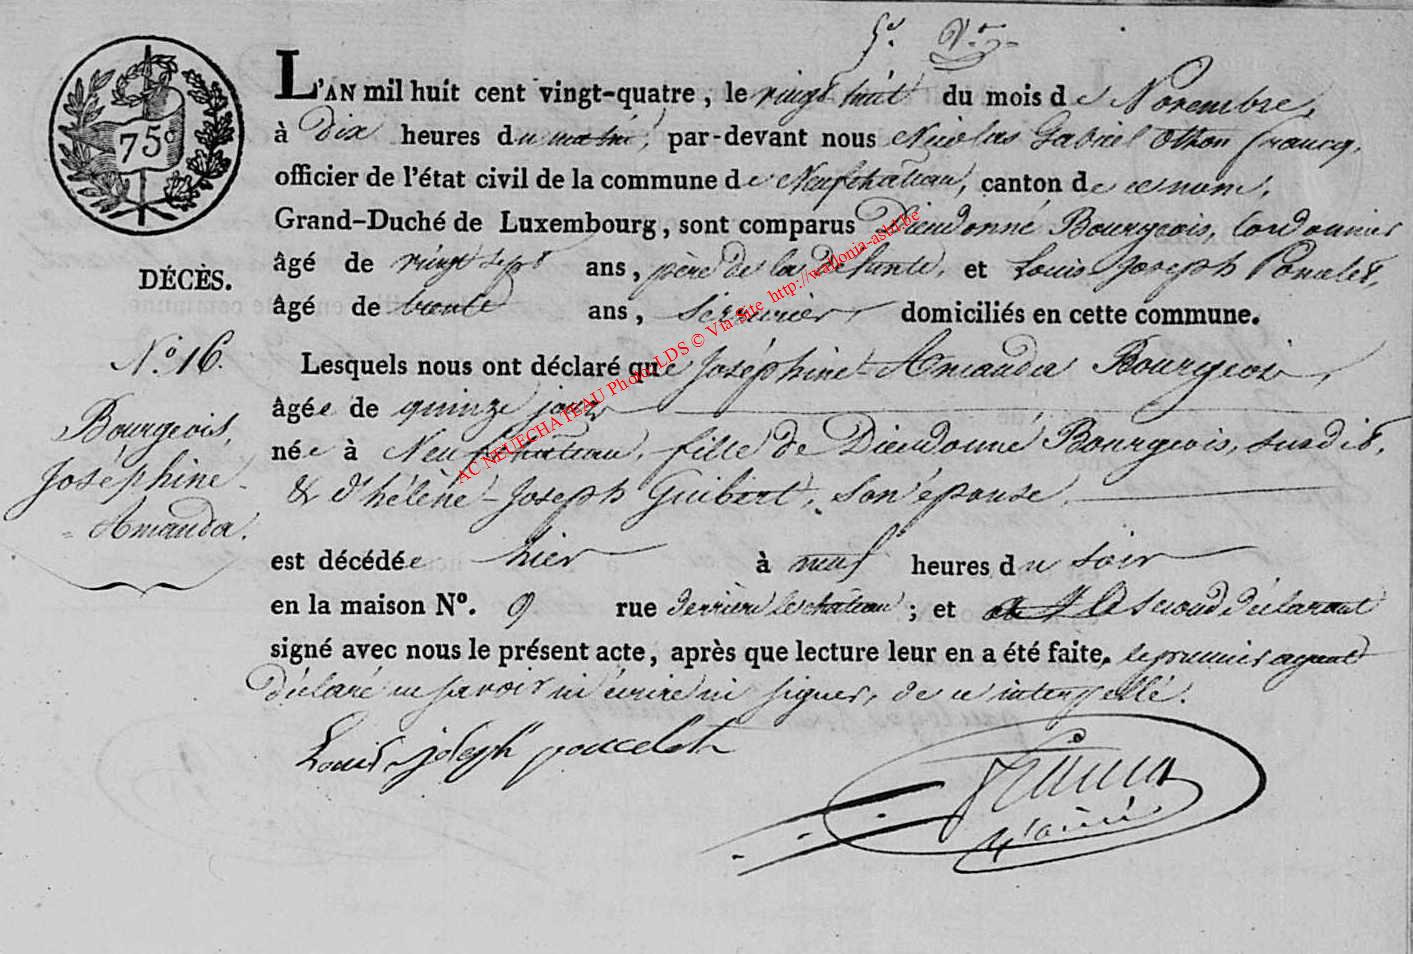 5e. Vo.
75c
L'AN mil huit cent vingt-quatre, le vingt huit du mois de Novembre,
à dix heures du matin, par-devant nous Nicolas Gabriel Othon Francq,
officier de l'état civil de la commune de Neufchâteau, canton de ce nom,
Grand-Duché de Luxembourg, sont comparus Dieudonné Bourgeois, Cordonnier
âgé de vingt sept ans, père de la défunte, et Louis Joseph Poncelet,
âgé de trente ans, serrurier, domiciliés en cette commune.
DÉCÈS.
No. 16.
Bourgeois,
Joséphine-
=Amanda.
Lesquels nous ont déclaré que Joséphine-Amanda Bourgeois,
âgée de quinze jours
née à Neufchâteau, fille de Dieudonné Bourgeois, susdit,
& d'hélène-Joseph Guibert, son épouse,
est décédée hier à neuf heures du soir
en la maison No. 9 rue derrière le château; et le second déclarant
signé avec nous le présent acte, après que lecture leur en a été faite, le premier ayant
déclaré ne savoir ni écrire ni signer, de ce interpellé.
Louis joseph poncelet
Francq
l'aîné
AC NEUFCHATEAU Photo LDS © Via site http://wallonia-asbl.be